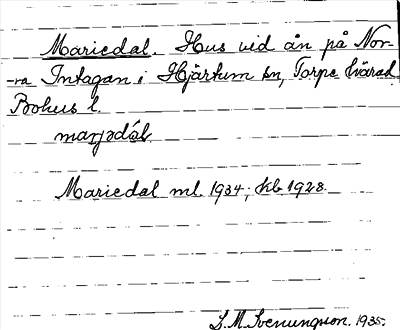 Mariedal. Hus vid ån på Nor-
-ra Intagan i Hjärtum sn, Torpe härad
Bohus l.
Mariedal ml. 1934; kb 1928.
S. M. Svenungson. 1935.